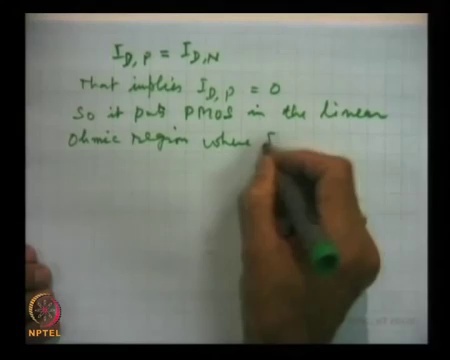 I_D,P = I_D,N
That implies I_D,P = 0
So it puts PMOS in the Linear
Ohmic region where
NPTEL